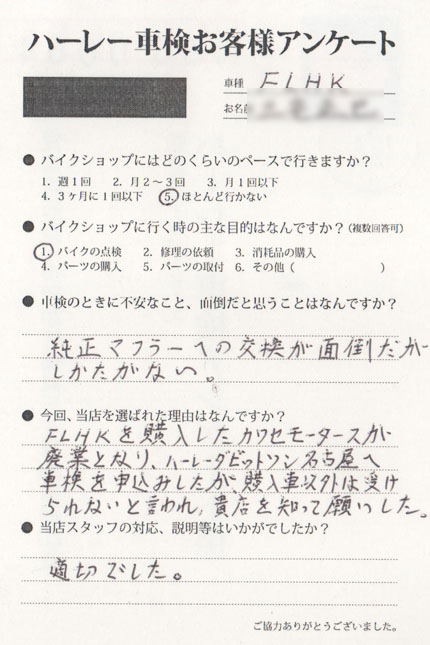 ハーレー車検お客様アンケート
車種 FLHK
お名前
● バイクショップにはどのくらいのペースで行きますか？
1. 週1回 2. 月2～3回 3. 月1回以下
4. 3ヶ月に1回以下 5. ほとんど行かない
● バイクショップに行く時の主な目的はなんですか？（複数回答可）
1. バイクの点検 2. 修理の依頼 3. 消耗品の購入
4. パーツの購入 5. パーツの取付 6. その他（ ）
● 車検のときに不安なこと、面倒だと思うことはなんですか？
純正マフラーへの交換が面倒だが
しかたがない。
● 今回、当店を選ばれた理由はなんですか？
FLHKを購入したカワセモータースが
廃業となり、ハーレーダビットソン名古屋へ
車検を申込みしたが、購入車以外は受け
られないと言われ、貴店を知って願いした。
● 当店スタッフの対応、説明等はいかがでしたか？
適切でした。
ご協力ありがとうございました。